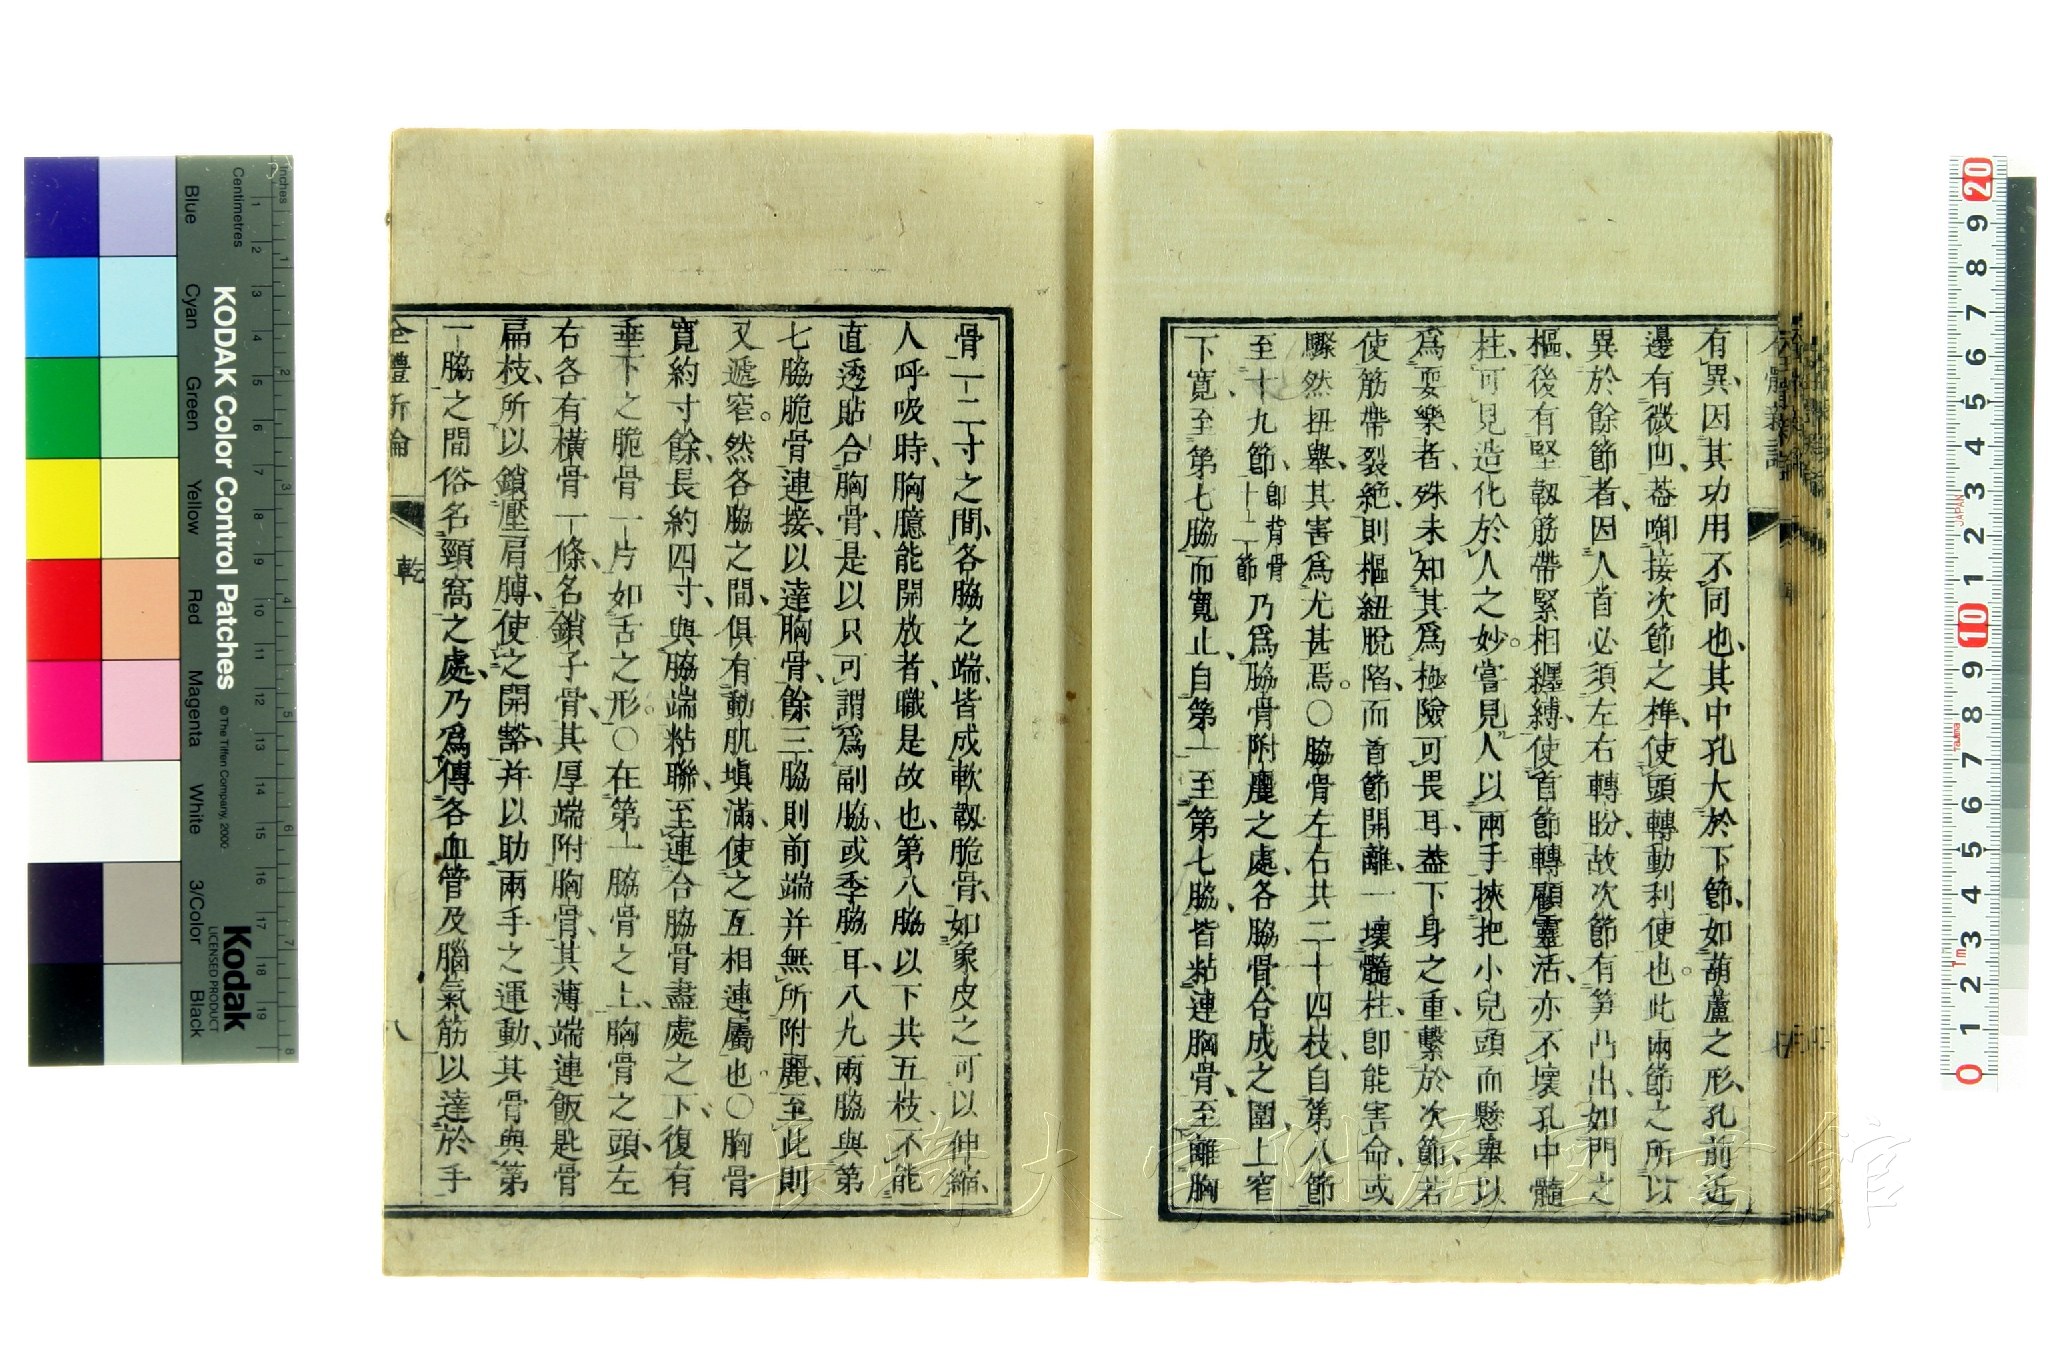 有異、因其功用不同也、其中孔大於下節、如葫蘆之形、孔前近
邊有微凹、葢啣接次節之榫、使頭轉動利便也。此兩節之所以
異於餘節者、因人首必須左右轉盼、故次節有笋凸出、如門之
樞、後有堅韌筋帶緊相纒縛、使首節轉顧靈活、亦不壞孔中髓
柱、可見造化於人之妙。嘗見人以兩手挾把小兒頭而懸舉以
爲耍樂者、殊未知其爲極險可畏耳、葢下身之重、繫於次節、若
使筋帶裂絶、則樞紐脫陷、而首節開離、一壞髓柱、卽能害命、或
驟然扭舉、其害爲尤甚焉。〇脇骨左右共二十四枝、自第八節
至十九節、卽背骨十二節乃爲脇骨附麗之處、各脇骨合成之圍、上窄
下寬、至第七脇而寬止、自第一至第七脇、皆粘連胸骨、至離胸
骨一二寸之間、各脇之端、皆成軟韌脆骨、如象皮之可以伸縮、
人呼吸時、胸臆能開放者、職是故也、第八脇以下共五枝、不能
直透貼合胸骨、是以只可謂爲副脇、或季脇耳、八九兩脇與第
七脇脆骨連接、以達胸骨、餘三脇則前端并無所附麗、至此則
又遞窄。然各脇之間、俱有動肌塡滿、使之互相連屬也。〇胸骨
寬約寸餘、長約四寸、與脇端粘聯、至連合脇骨盡處之下、復有
垂下之脆骨一片如舌之形。〇在第一脇骨之上、胸骨之頭、左
右各有橫骨一條、名鎖子骨、其厚端附胸骨、其薄端連飯匙骨
扁枝、所以鎖壓肩膊、使之開豁、并以助兩手之運動、其骨與第
一脇之間俗名頸窩之處、乃爲傳各血管及腦氣筋以達於手
全體新論
乾
八
KODAK Color Control Patches
© The Tiffen Company, 2000
Kodak
LICENSED PRODUCT
Inches
Centimetres
Blue
Cyan
Green
Yellow
Red
Magenta
White
3/Color
Black
JAPAN
長崎大学附属図書館